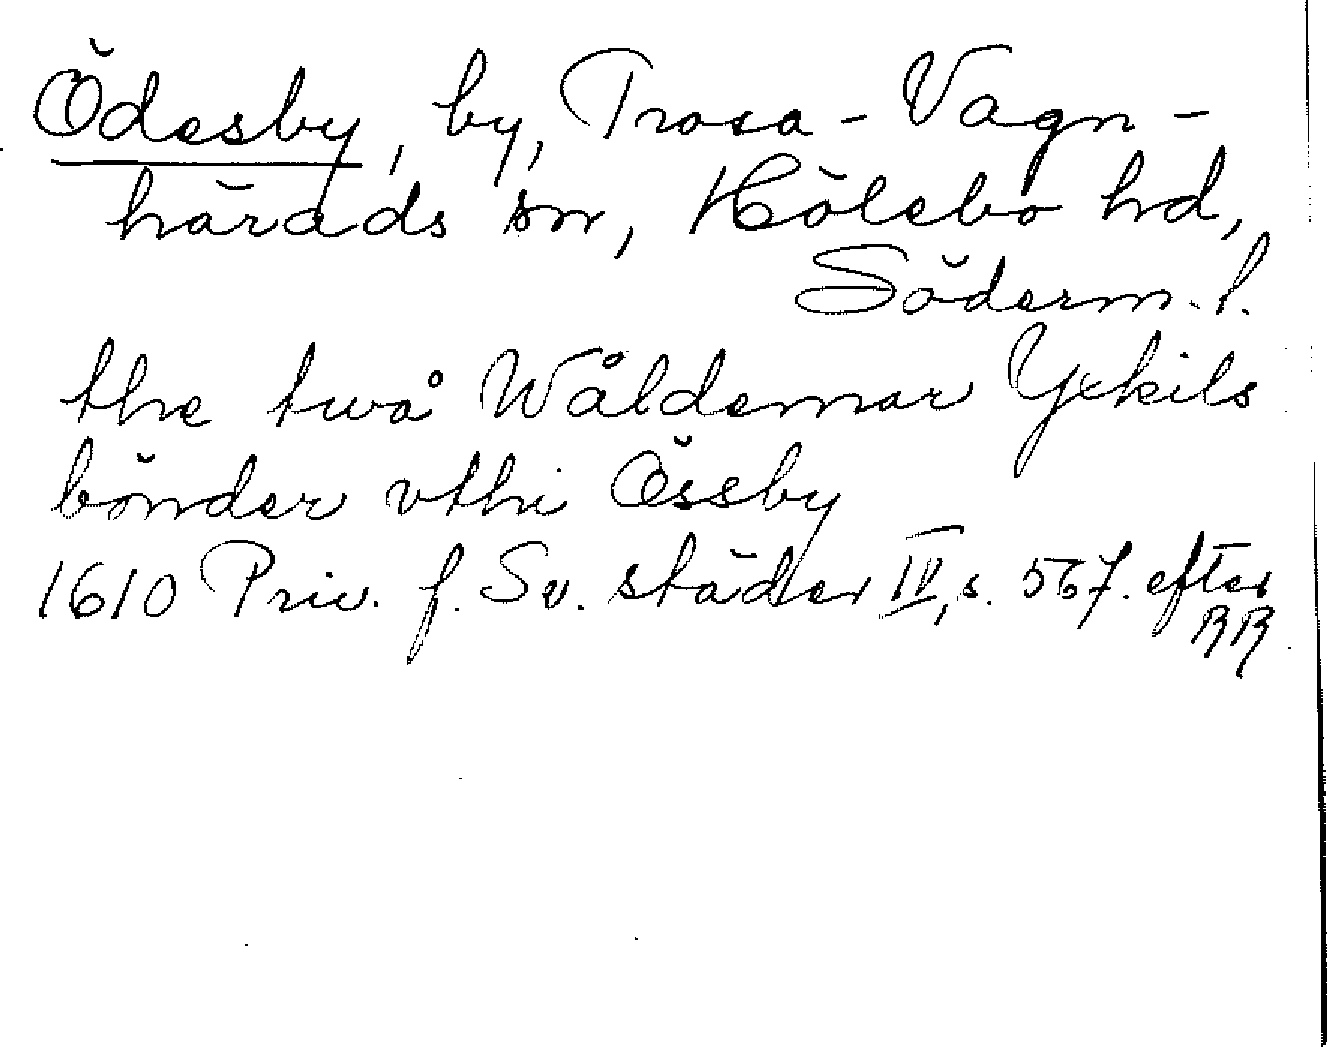 Ödesby, by, Trosa-Vagn-
härads sn, Hölebo hd,
Söderm. l.
the twå Wåldemar Yxkils
bönder vthi Össby
1610 Priv. f. Sv. städer IV, s. 567. efter
RR